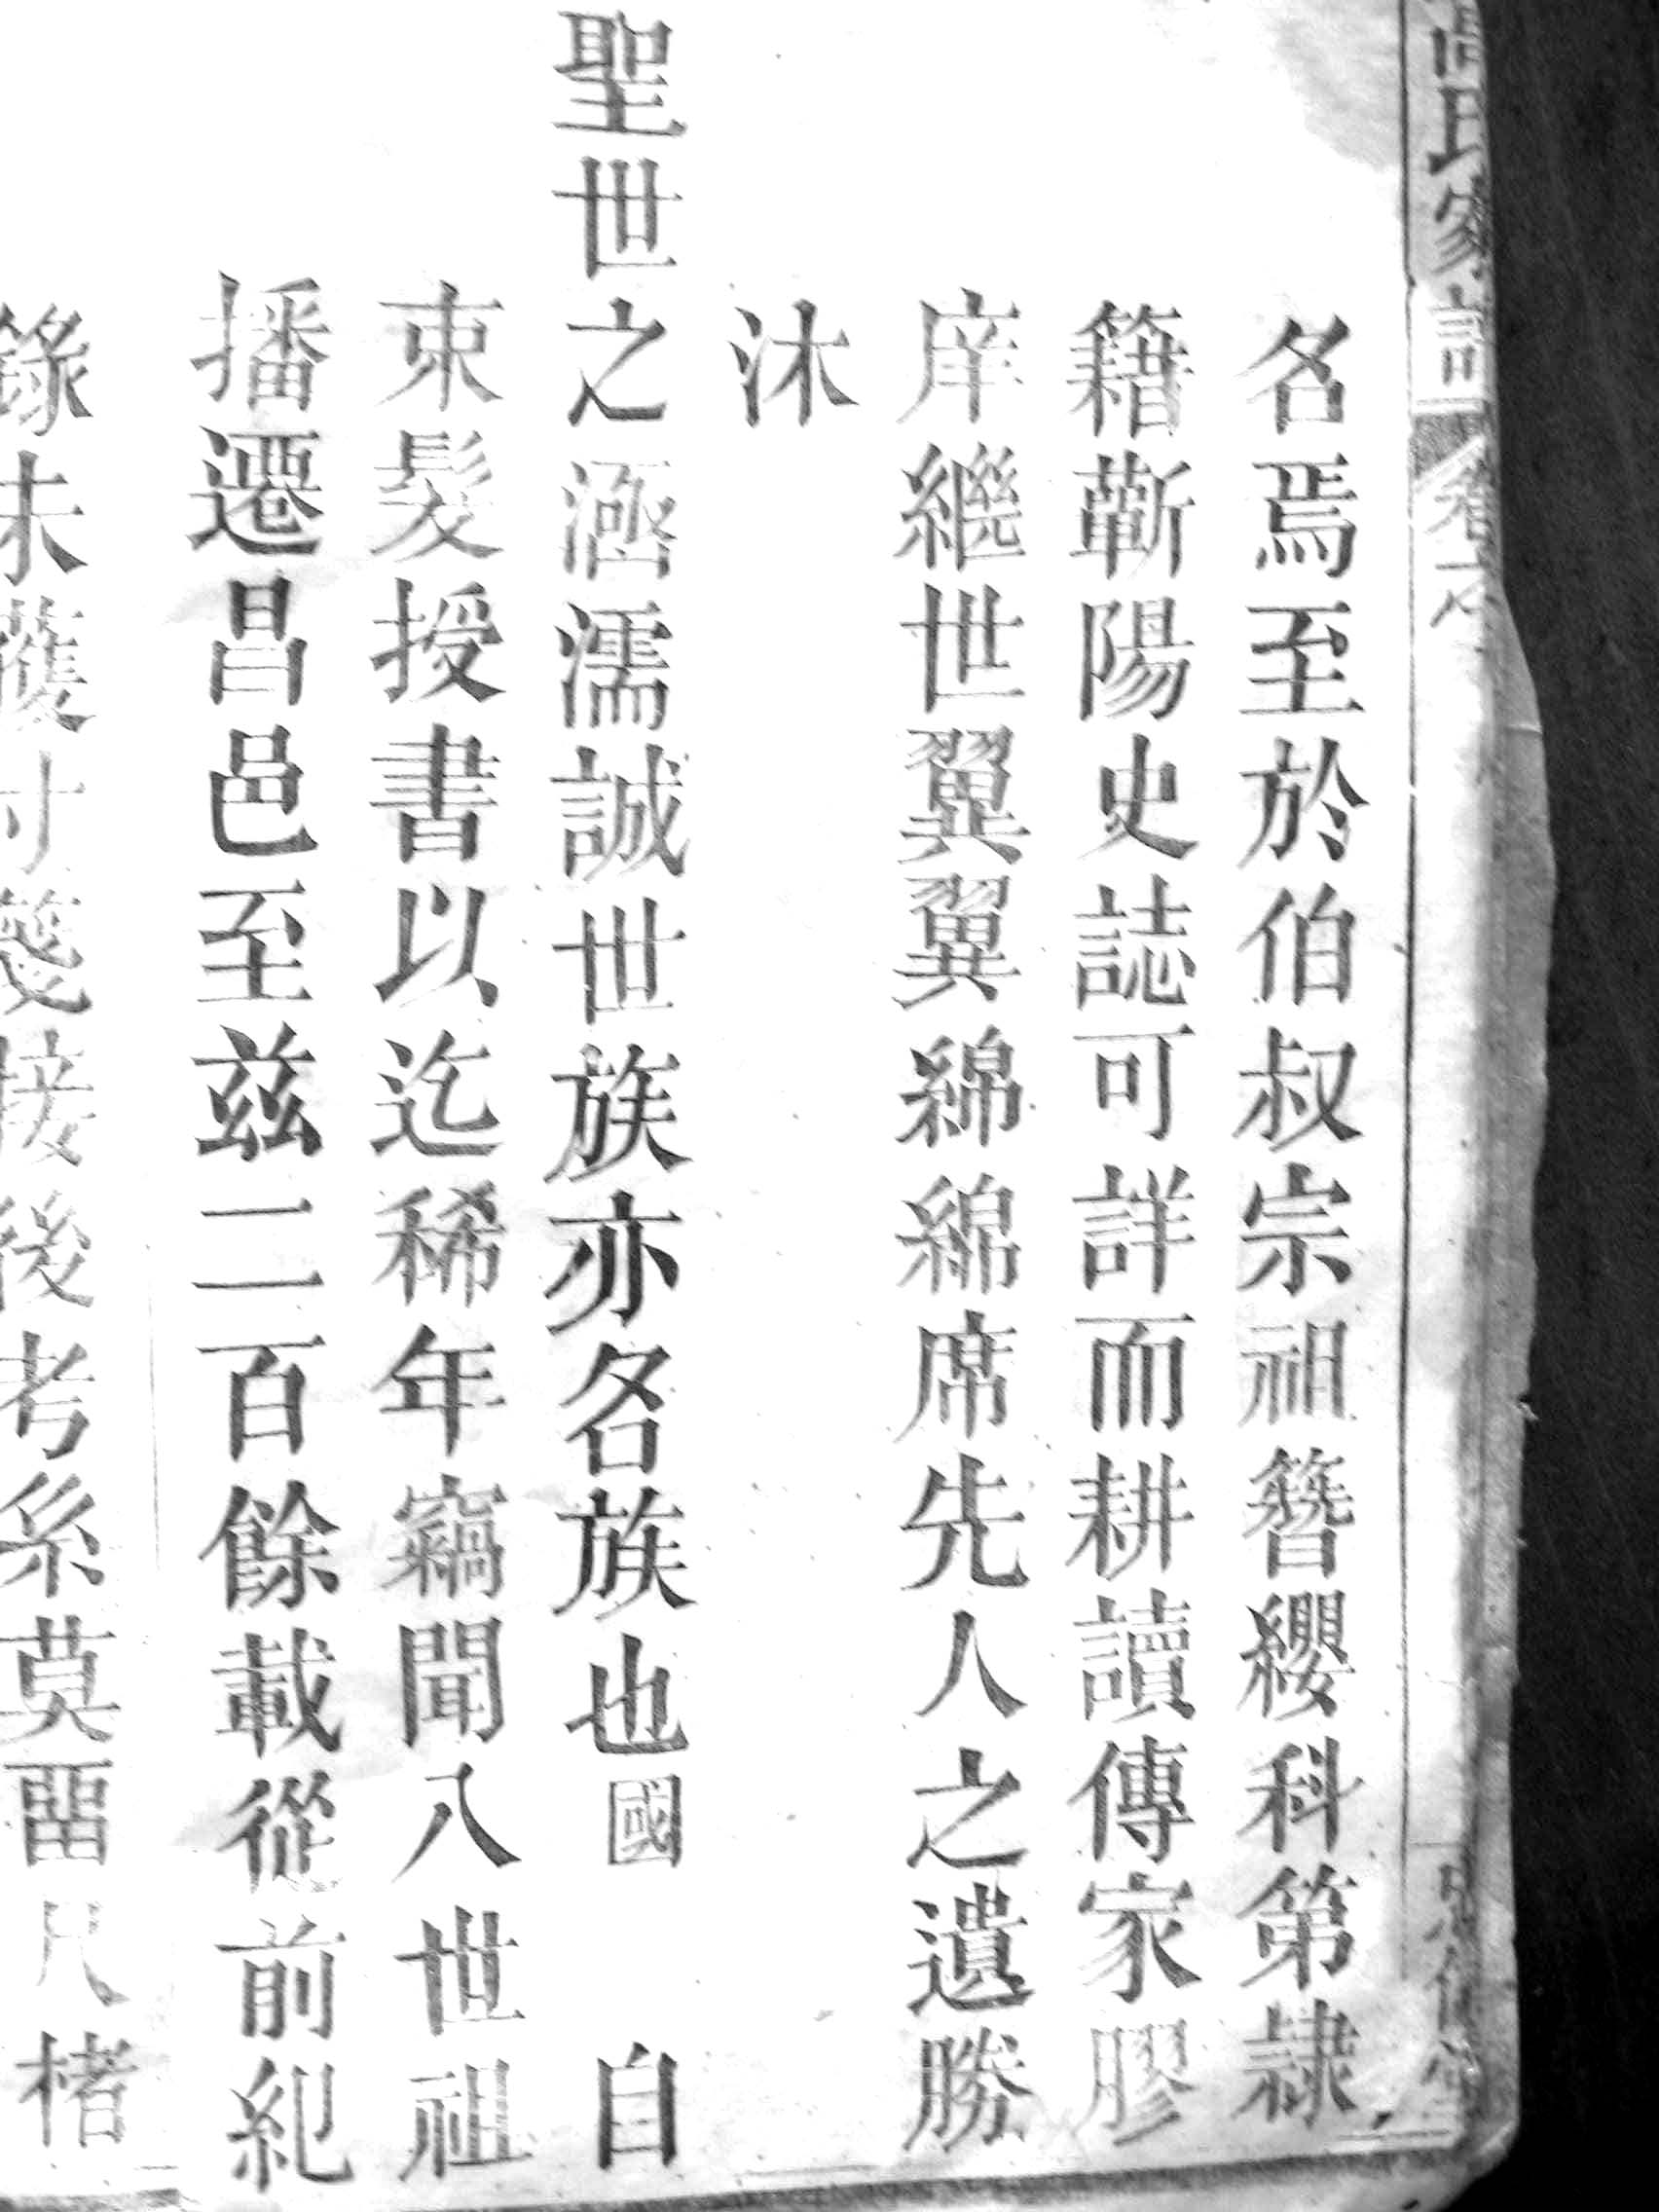 氏家
卷六
名焉至於伯叔宗祖簪纓科第隸
籍蘄陽史誌可詳而耕讀傳家膠
庠繼世翼翼綿綿席先人之遺勝
沐
聖世之涵濡誠世族亦名族也國 自
束髮授書以迄稀年竊聞八世祖
播遷昌邑至茲二百餘載從前紀
錄未獲寸箋接後考系莫畱尺楮